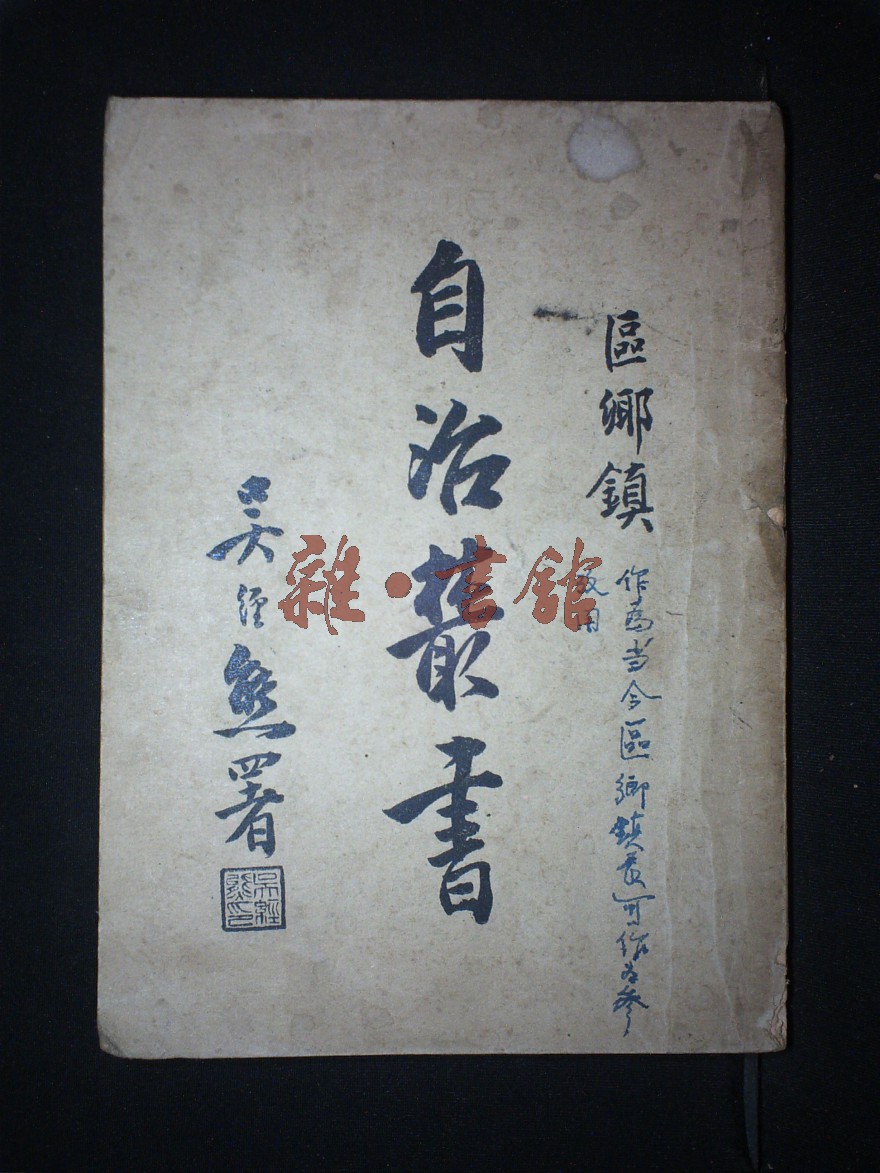 區鄉鎮
自治叢書
吳經熊署
吳經熊印
作为当今區鄉鎮長可作为參
攷用
雜·書館